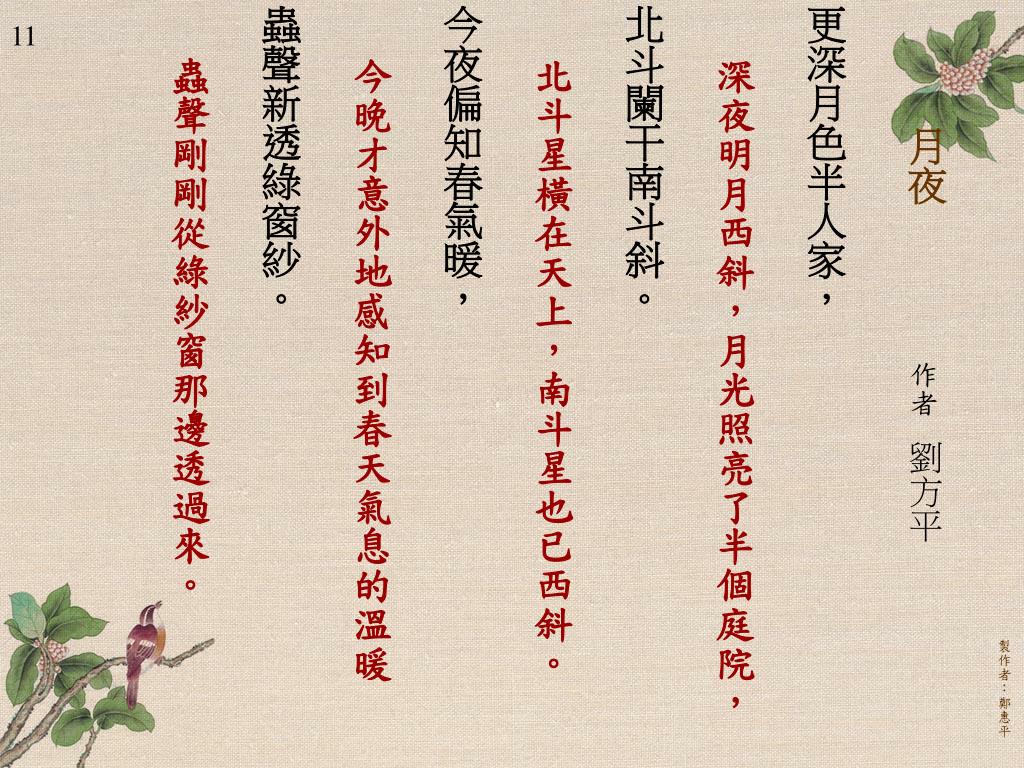 月夜
作者 劉方平
更深月色半人家，
深夜明月西斜，月光照亮了半個庭院，
北斗闌干南斗斜。
北斗星橫在天上，南斗星也已西斜。
今夜偏知春氣暖，
今晚才意外地感知到春天氣息的溫暖
蟲聲新透綠窗紗。
蟲聲剛剛從綠紗窗那邊透過來。
製作者：鄭惠平
11